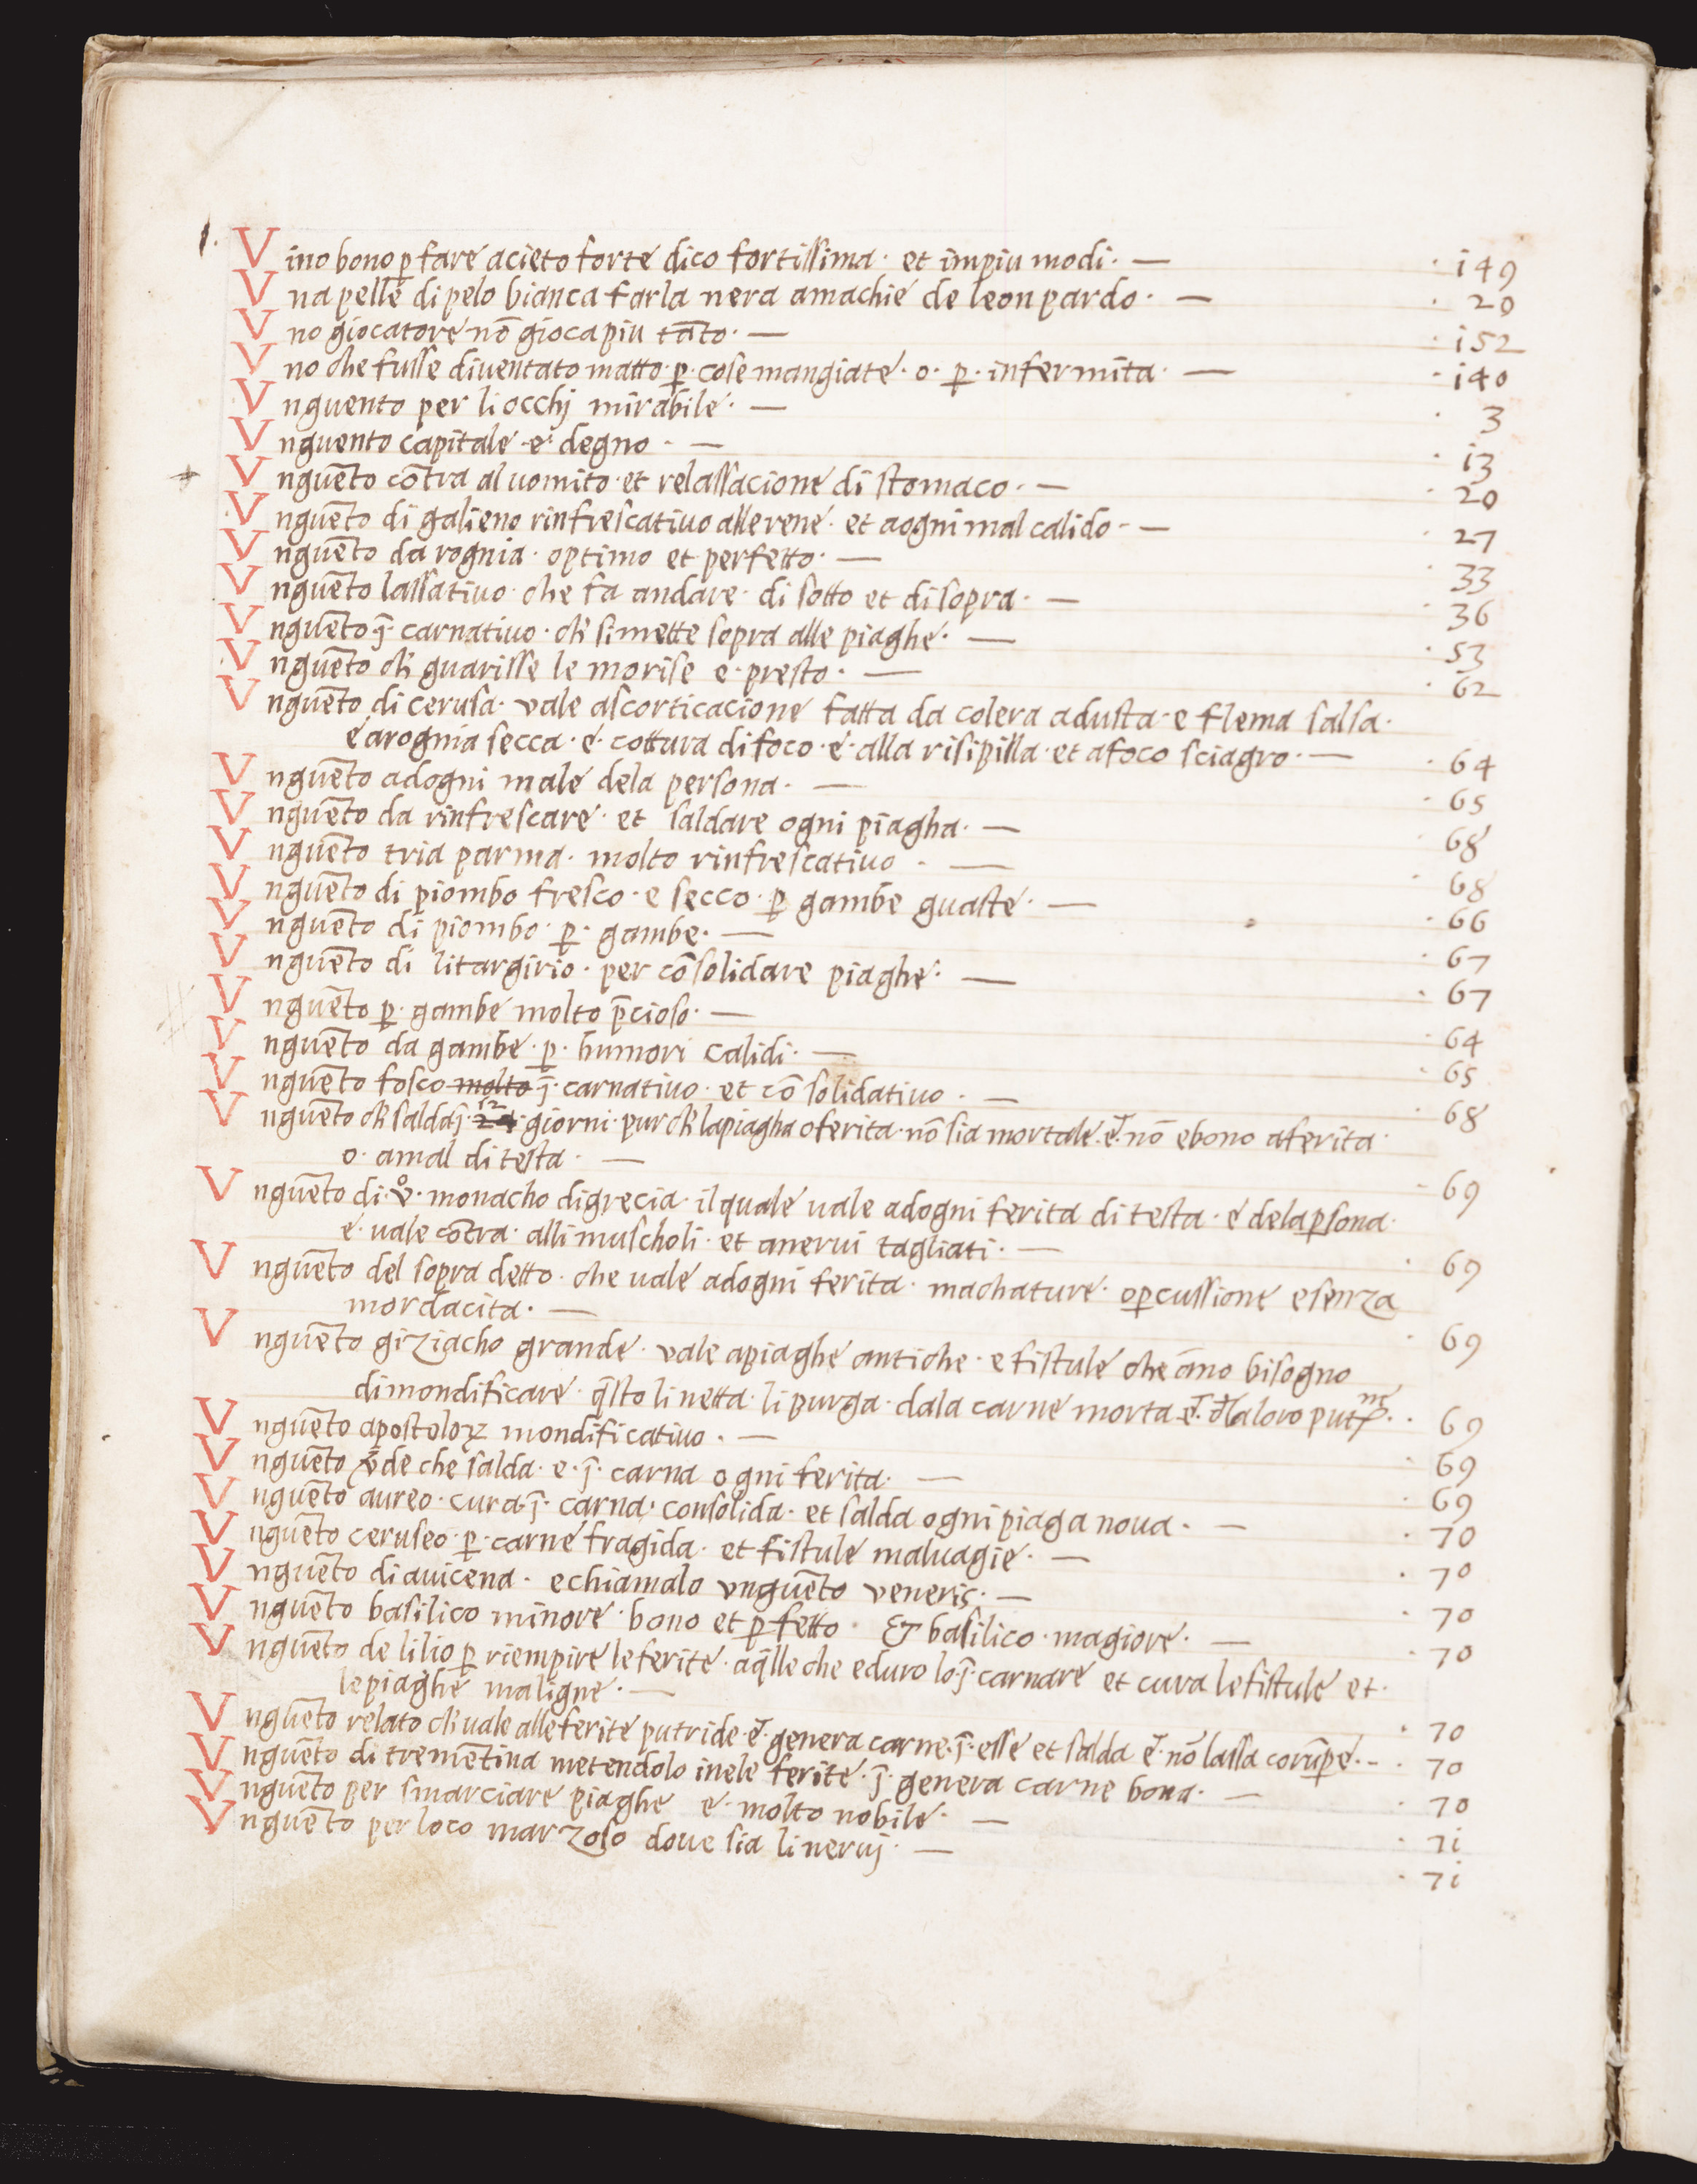 Vino bono ꝑ fare acieto forte dico fortissima · et impiu modi · — · i49
Vna pelle di pelo bianca farla nera amachie de leonpardo · — · 20
Vno giocatore nō gioca piu tāto · — · i52
Vno che fusse diuentato matto · ꝑ · cose mangiate · o · ꝑ · infermita · — · i40
Vnguento per li occhj mirabile · — · 3
Vnguento capitale · e · degno · — · i3
Vnguēto cōtra al uomito · et relassacione di stomaco · — · 20
Vnguēto di galieno rinfrescatiuo alle rene · et aogni mal calido · — · 27
Vnguēto da rognia · optimo et perfetto · — · 33
Vnguēto lassatiuo · che fa andare · di sotto et di sopra · — · 36
Vnguēto j̄ · carnatiuo · ch̄ si mette sopra alle piaghe · — · 53
Vnguēto ch̄ guarisse le morise e · presto · — · 62
Vnguēto di cerusa · vale ascorticacione fatta da colera adusta · e flema salsa ·
e arogma secca · e · cottura di foco · e · alla risipilla · et afoco sciagro · — · 64
Vnguēto adogni male dela persona · — · 65
Vnguēto da rinfrescare · et saldare ogni piagha · — · 68
Vnguēto tria parma · molto rinfrescatiuo · — · 68
Vnguēto di piombo fresco · e secco · ꝑ gambe guaste · — · 66
Vnguēto di piombo · ꝑ · gambe · — · 67
Vnguēto di litargirio · per cōsolidare piaghe · — · 67
Vnguēto ꝑ · gambe molto p̄cioso · — · 64
Vnguēto da gambe · ꝑ · humori calidi · — · 65
Vnguēto fosco molto j̄ · carnatiuo · et cō solidatiuo · — · 68
Vnguēto ch̄ salda j̄ · 12 24 · giorni · pur ch̄ la piagha o ferita · nō sia mortale · ē · nō e bono aferita ·
o · amal di testa · — · 69
Vnguēto di · v̊ · monacho di grecia · il quale vale adogni ferita di testa · e dela ꝑsona ·
e · vale cōtra · alli muscholi · et anerui tagliati · — · 69
Vnguēto del sopra detto · che uale adogni ferita · machature · o ꝑcussione e senza
mordacita · — · 69
Vnguēto giziacho grande · vale apiaghe antiche · e fistule che āno bisogno
di mondificare · q̄sto li netta · li purga · dala carne morta ē · · 69
Vnguēto apostoloꝝ mondificatiuo · — · 69
Vnguēto v̄de che salda · e · j̄ · carna ogni ferita · — · 69
Vnguēto aureo · cura · j̄ · carna · consolida · et salda ogni piaga noua · — · 70
Vnguēto ceruseo · ꝑ · carne fragida · et fistule maluagie · — · 70
Vnguēto di auicena · e chiamalo vnguēto veneris · — · 70
Vnguēto basilico minore · bono et ꝑfetto · & basilico · magiore · — · 70
Vnguēto de lilio ꝑ riempire le ferite · aq̄lle che e duro lo · j̄ · carnare et cura le fistule et ·
le piaghe maligne · — · 70
Vnguēto relato ch̄ uale alle ferite putride · ē · genera carne · j̄ · esse et salda ē · nō lassa corūpe · - · 70
Vnguēto di tremētina metendolo inele ferite · j̄ · genera carne bona · — · 70
Vnguēto per smarciare piaghe e · molto nobile · — · 7i
Vnguēto per loco marzoso doue sia li neruj · — · 7i